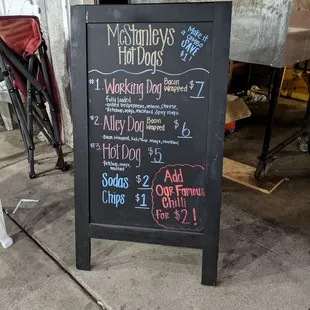 McStanleys
Hot Dogs
Make it
a Combo
SAVE
$1
#1. Working Dog Bacon Wrapped $7
Fully loaded
grilled bell peppers, onions, cheese,
Ketchup, Mayo, Mustard, Spicy Mayo
#2. Alley Dog Bacon Wrapped $6
Ketchup, Mayo, Mustard
#3. Hot Dog $5
Ketchup, Mayo,
Mustard
Sodas $2
Chips $1
Add
Our Famous
Chilli
For $2!